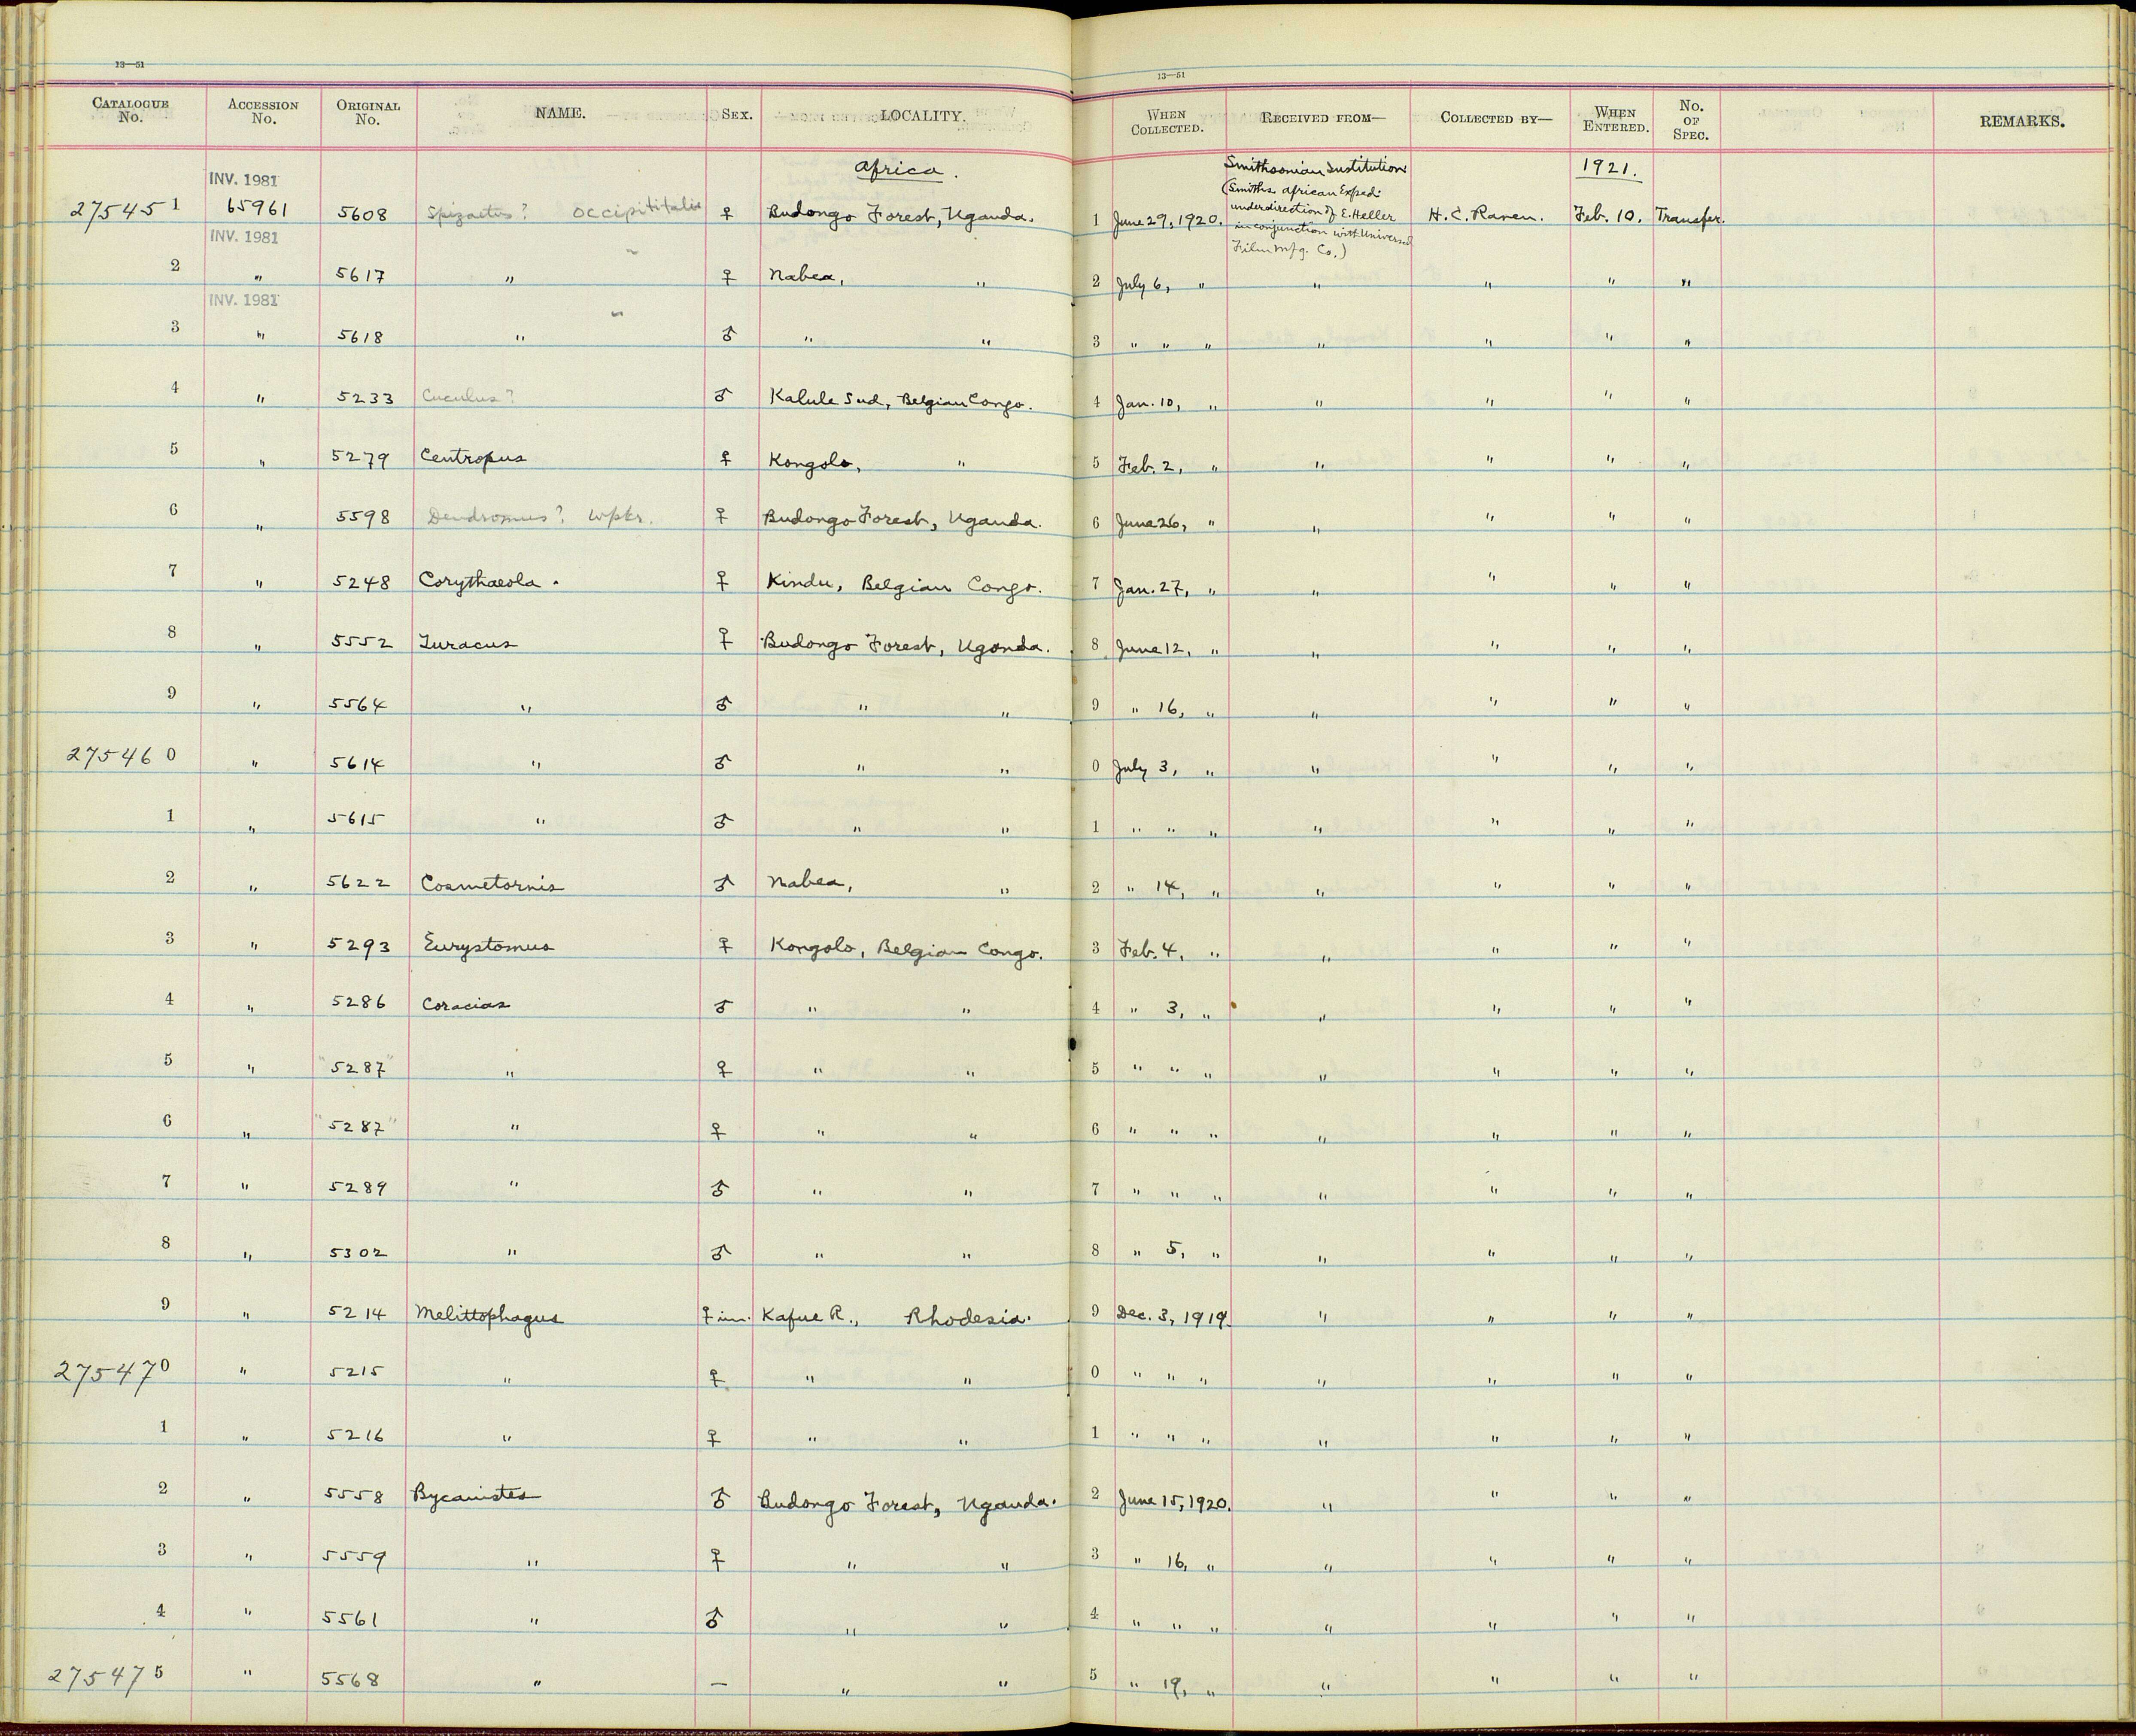 13—51
13—51
CATALOGUE No. ACCESSION No. ORIGINAL No. NAME. SEX. LOCALITY. WHEN COLLECTED. RECEIVED FROM— COLLECTED BY— WHEN ENTERED. No. OF SPEC. REMARKS.
Africa. Smithsonian Institution 1921.
INV. 1981 (Smiths. African Exped.
275451 65961 5608 Spizaetus? occipititalis ♀ Budongo Forest, Uganda. 1 June 29, 1920. under direction of E. Heller H. C. Raven. Feb. 10. Transfer.
INV. 1981 in conjunction with Universal
Film Mfg. Co.)
2 " 5617 " " ♀ Nabea, " 2 July 6, " " " " "
INV. 1981
3 " 5618 " " ♂ " " 3 " " " " " " "
4 " 5233 Cuculus? ♂ Kalule Sud, Belgian Congo. 4 Jan. 10, " " " " "
5 " 5279 Centropus ♀ Kongolo, " 5 Feb. 2, " " " " "
6 " 5598 Dendromus? wpkr. ♀ Budongo Forest, Uganda. 6 June 26, " " " " "
7 " 5248 Corythaeola. ♀ Kindu, Belgian Congo. 7 Jan. 27, " " " " "
8 " 5552 Turacus ♀ Budongo Forest, Uganda. 8 June 12, " " " " "
9 " 5564 " ♂ " " 9 " 16, " " " " "
275460 " 5614 " ♂ " " 0 July 3, " " " " "
1 " 5615 " ♂ " " 1 " " " " " " "
2 " 5622 Cosmetornis ♂ Nabea, " 2 " 14, " " " " "
3 " 5293 Eurystomus ♀ Kongolo, Belgian Congo. 3 Feb. 4, " " " " "
4 " 5286 Coracias ♂ " " 4 " 3, " " " " "
5 " "5287" " ♀ " " 5 " " " " " " "
6 " "5287" " ♀ " " 6 " " " " " " "
7 " 5289 " ♂ " " 7 " " " " " " "
8 " 5302 " ♂ " " 8 " 5, " " " " "
9 " 5214 Melittophagus ♀ im. Kafue R., Rhodesia. 9 Dec. 3, 1919. " " " "
275470 " 5215 " ♀ " " 0 " " " " " " "
1 " 5216 " ♀ " " 1 " " " " " " "
2 " 5558 Bycanistes ♂ Budongo Forest, Uganda. 2 June 15, 1920. " " " "
3 " 5559 " ♀ " " 3 " 16, " " " " "
4 " 5561 " ♂ " " 4 " " " " " " "
275475 " 5568 " — " " 5 " 19, " " " " "